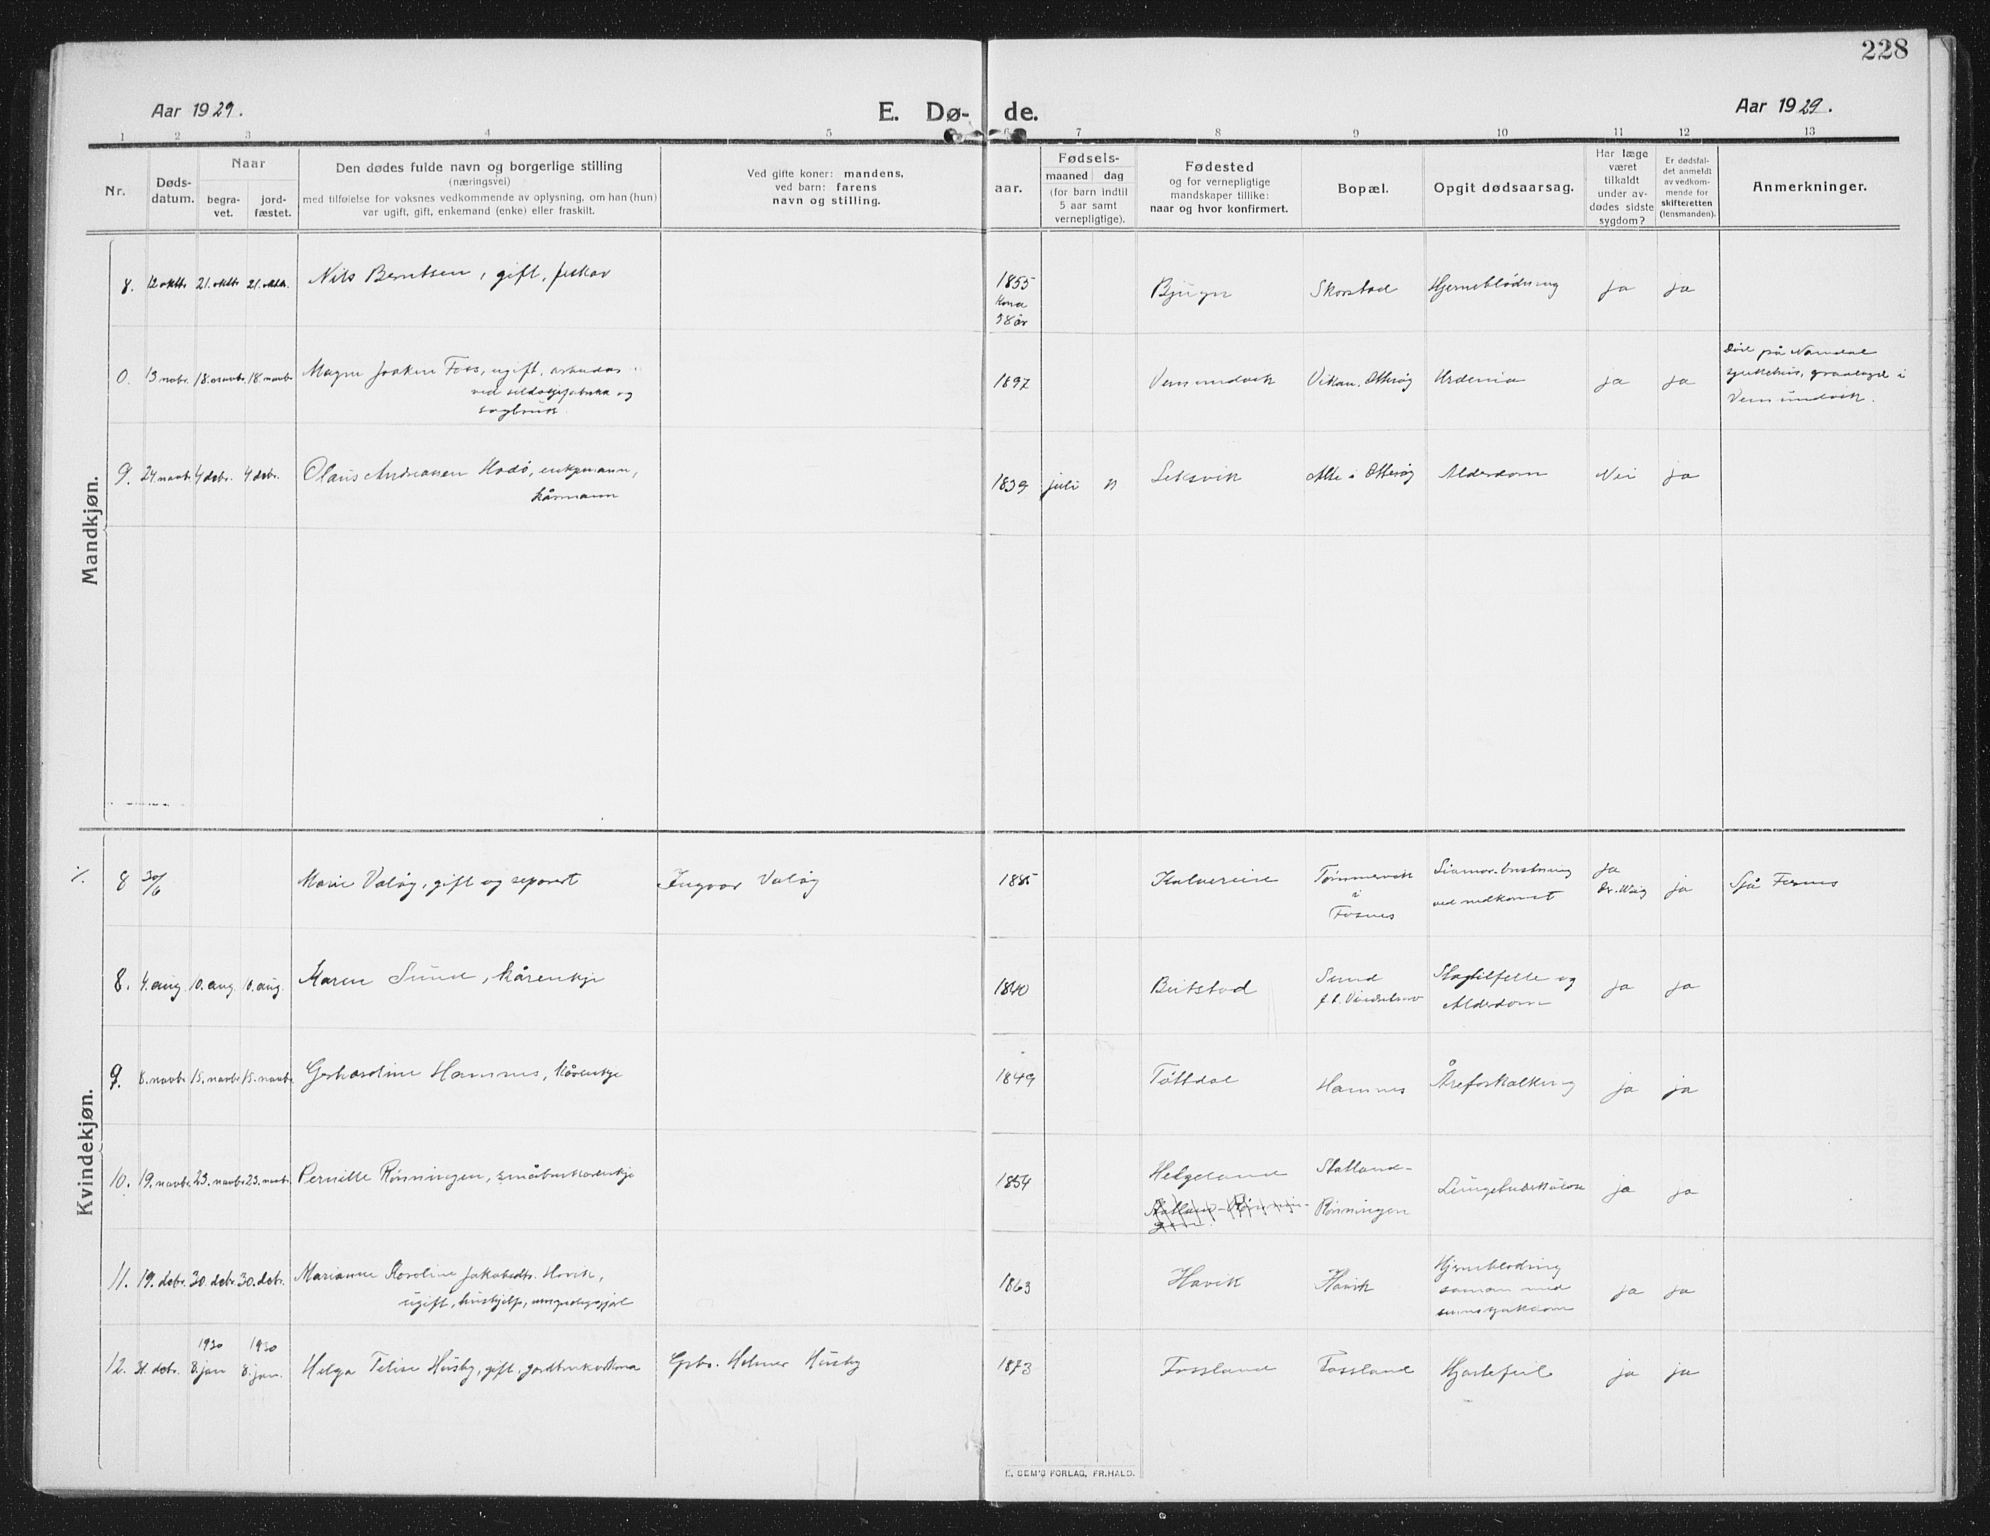 228
Aar 1929.
E. Dø- de.
Aar 1929.
1 2 3 4 5 6 7 8 9 10 11 12 13
Nr.
Døds-
datum.
Naar
begra-
vet.
jord-
fæstet.
Den dødes fulde navn og borgerlige stilling
(næringsvei)
med tilføielse for voksnes vedkommende av oplysning, om han (hun)
var ugift, gift, enkemand (enke) eller fraskilt.
Ved gifte koner: mandens,
ved barn: farens
navn og stilling.
aar.
Fødsels-
maaned dag
(for barn indtil
5 aar samt
vernepligtige).
Fødested
og for vernepligtige
mandskaper tillike:
naar og hvor konfirmert.
Bopæl.
Opgit dødsaarsag.
Har læge
været
tilkaldt
under av-
dødes sidste
sygdom?
Er dødsfal-
det anmeldt
av vedkom-
mende for
skifteretten
(lensmanden).
Anmerkninger.
Mandkjøn.
8. 12 oktbr 21. oktbr 21. oktbr. Nils Berntsen, gift, fiskar 1855 Bjugn Skorstad Hjerneblødning ja ja
Kona
38 år
0. 13 novbr. 18. novbr. 18. novbr. Magne Joakim Foss, ugift, arbeidar 1897 Vemundvik Vikan, Otterøy ja ja
ved sildoljefabrikk og
sagbruk.
Døde på Namdal
sjukehus, gravlagd i
Vemundvik.
9. 24. novbr 4 debr. 4 debr. Olaus Andreassen Hodø, enkjemann, 1839 juli 11 Leksvik Alte i Otterøy Alderdom Nei ja
kårmann
Kvindekjøn.
%. 8 30/6 Marie Valøy, gift og separert Ingvar Valøy 1885 Kalvereie Tømmervik i Fosnes ja ja Sjå Fosnes
ved nedkomst
8. 4. aug. 10. aug. 10. aug. Maren Sund, kårenkje 1840 Beitstad Sund Slagtilfelle og ja ja
Alderdom
9. 8. novbr 15. novbr 15. novbr. Gerhardine Hamnes, kårenkje 1849 Tøttdal Hamnes Åreforkalking ja ja
10. 19. novbr 23. novbr 23. novbr. Pernille Rønningen, småbrukarenkje 1854 Helgeland Statland- ja ja
Rønningen
11. 19. debr. 30. debr. 30. debr. Marianne Karoline Jakobsdtr. Hovik, 1863 Havik Havik Hjerneblødning ja ja
ugift, hushjelp,
saman med
sinnssjukdom
1930 1930
12. 31. debr. 8. jan 8. jan. Helga Teline Husby, gift, jordbrukarkona Gbr. Helmer Husby 1873 Fossland Fossland Hjartefeil ja ja
E. SEM'S FORLAG, FR.HALD.